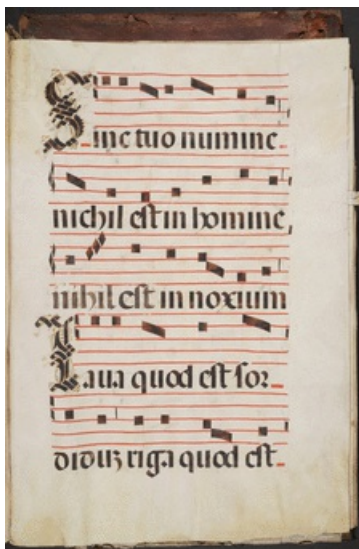 Sine tuo numine
nichil est in homine,
nihil est in noxium
Laua quod est sor
diduz riga quod est